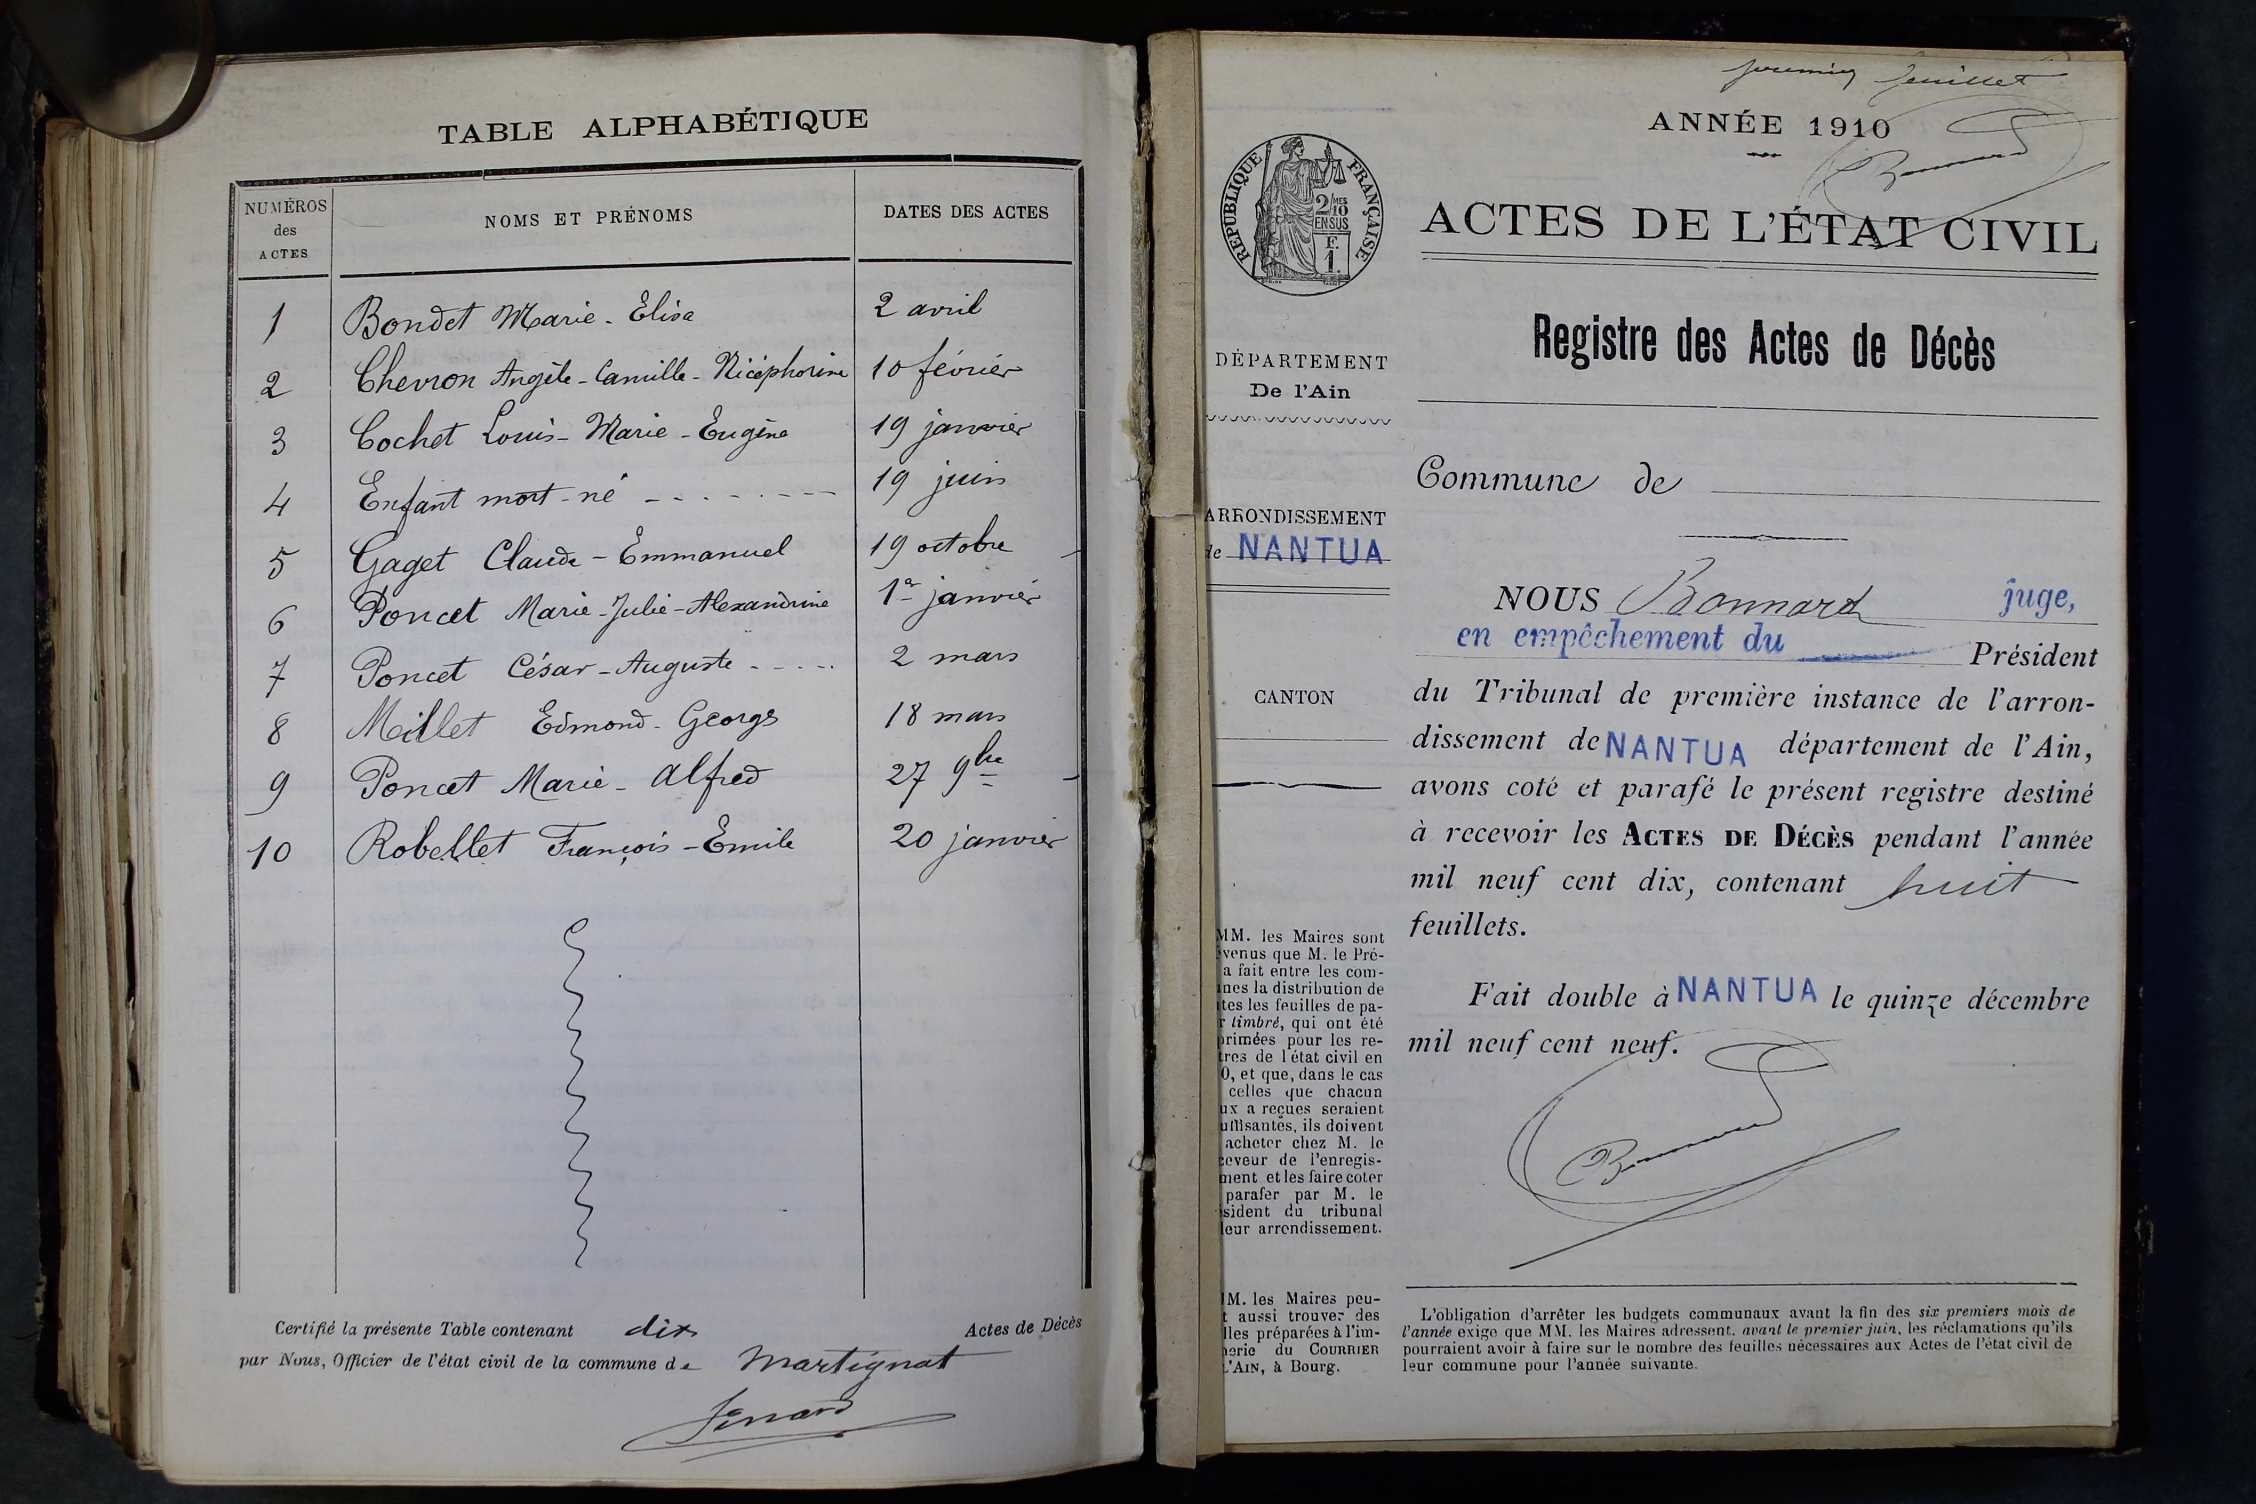 TABLE ALPHABÉTIQUE
NUMÉROS des ACTES | NOMS ET PRÉNOMS | DATES DES ACTES
1 Bondet Marie - Elisa 2 avril
2 Chevron Angèle - Camille - Nicéphorine 10 février
3 Cochet Louis - Marie - Eugène 19 janvier
4 Enfant mort-né 19 juin
5 Gaget Claude - Emmanuel 19 octobre
6 Poncet Marie - Julie - Alexandrine 1er janvier
7 Poncet César - Auguste 2 mars
8 Millet Edmond - Georges 18 mars
9 Poncet Marie - Alfred 27 9bre
10 Robellet François - Emile 20 janvier
Certifié la présente Table contenant dix Actes de Décès
par Nous, Officier de l'état civil de la commune de Martignat
premier feuillet
ANNÉE 1910
RÉPUBLIQUE FRANÇAISE
2/10 MES
EN SUS
F.
1.
ACTES DE L'ÉTAT CIVIL
Registre des Actes de Décès
DÉPARTEMENT
De l'Ain
Commune de
ARRONDISSEMENT
de NANTUA
CANTON
NOUS Bonnard juge,
en empêchement du Président
du Tribunal de première instance de l'arron-
dissement de NANTUA département de l'Ain,
avons coté et parafé le présent registre destiné
à recevoir les ACTES DE DÉCÈS pendant l'année
mil neuf cent dix, contenant huit
feuillets.
Fait double à NANTUA le quinze décembre
mil neuf cent neuf.
MM. les Maires sont
venus que M. le Pré-
a fait entre les com-
nes la distribution de
tes les feuilles de pa-
r timbré, qui ont été
primées pour les re-
tres de l'état civil en
0, et que, dans le cas
celles que chacun
ux a reçues seraient
uffisantes, ils doivent
acheter chez M. le
ceveur de l'enregis-
ment et les faire coter
parafer par M. le
sident du tribunal
leur arrondissement.
M. les Maires peu-
t aussi trouver des
lles préparées à l'im-
erie du COURRIER
L'AIN, à Bourg.
L'obligation d'arrêter les budgets communaux avant la fin des six premiers mois de
l'année exige que MM. les Maires adressent, avant le premier juin, les réclamations qu'ils
pourraient avoir à faire sur le nombre des feuilles nécessaires aux Actes de l'état civil de
leur commune pour l'année suivante.